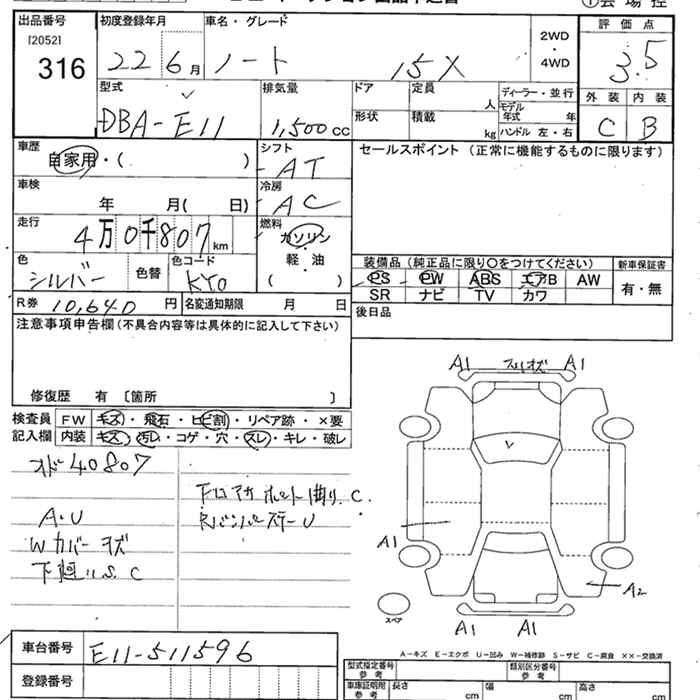 会場控
出品番号 初度登録年月 車名・グレード 評価点
[2052]
316 22 6月 ノート 15X 2WD・4WD 3.5
型式 排気量 ドア 定員 人 ディーラー・並行 外装 内装
DBA-E11 1,500cc 形状 積載 kg モデル年式 年 ハンドル 左・右 C B
車歴 シフト セールスポイント (正常に機能するものに限ります)
自家用・( ) AT
車検 冷房
年 月( 日) AC
走行 燃料
4万0千807km ガソリン
軽・油
( )
色 色替 色コード 装備品 (純正品に限り○をつけてください) 新車保証書
シルバー KY0 PS PW ABS エアB AW 有・無
SR ナビ TV カワ
R券 10,640円 名変通知期限 月 日 後日品
注意事項申告欄(不具合内容等は具体的に記入して下さい)
修復歴 有 [箇所 ]
検査員 FW キズ・飛石・ヒビ割・リペア跡・×要
記入欄 内装 キズ・汚レ・コゲ・穴・スレ・キレ・破レ
A1 スリキズ A1
オド40807
フロアサポート曲り C.
A・U Rバンパーステー U
Wカバーキズ
下廻り S.C
A1
A2
スペア
A1 A1
A-キズ E-エクボ U-凹み W-補修跡 S-サビ C-腐食 ××-交換済
車台番号 E11-511596
登録番号
型式指定番号 参考 類別区分番号 参考
車庫証明附 参考 長さ cm 幅 cm 高さ cm